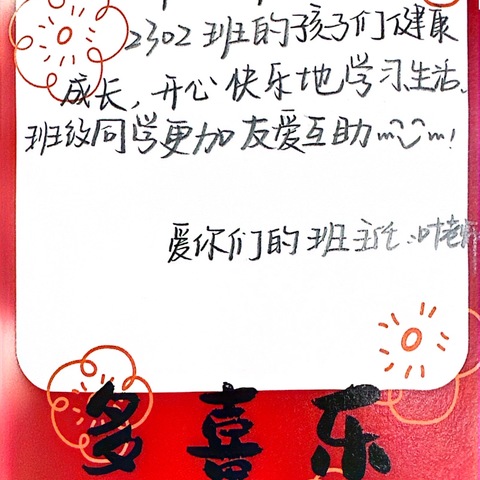 2302班的孩子们健康
成长，开心快乐地学习、生活、
班级同学更加友爱互助
爱你们的班主任：叶老师
多喜乐